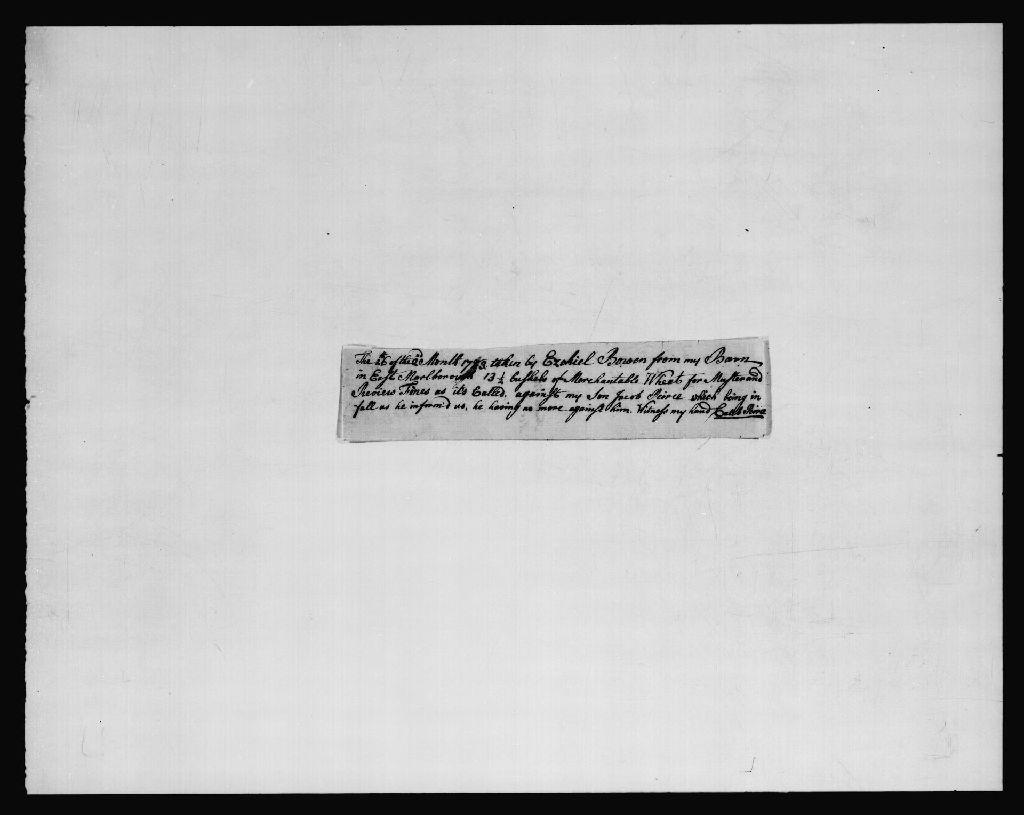 The of the 2d Month taken by Ezekiel Bowen from my Barn
in East Marlborough 13 ½ bushels of Merchantable Wheat for Muster and
Review Fines as it's Called, against my Son Jacob Peirce which being in
full as he inform'd us, he having no more against him. Witness my hand Caleb Peirce